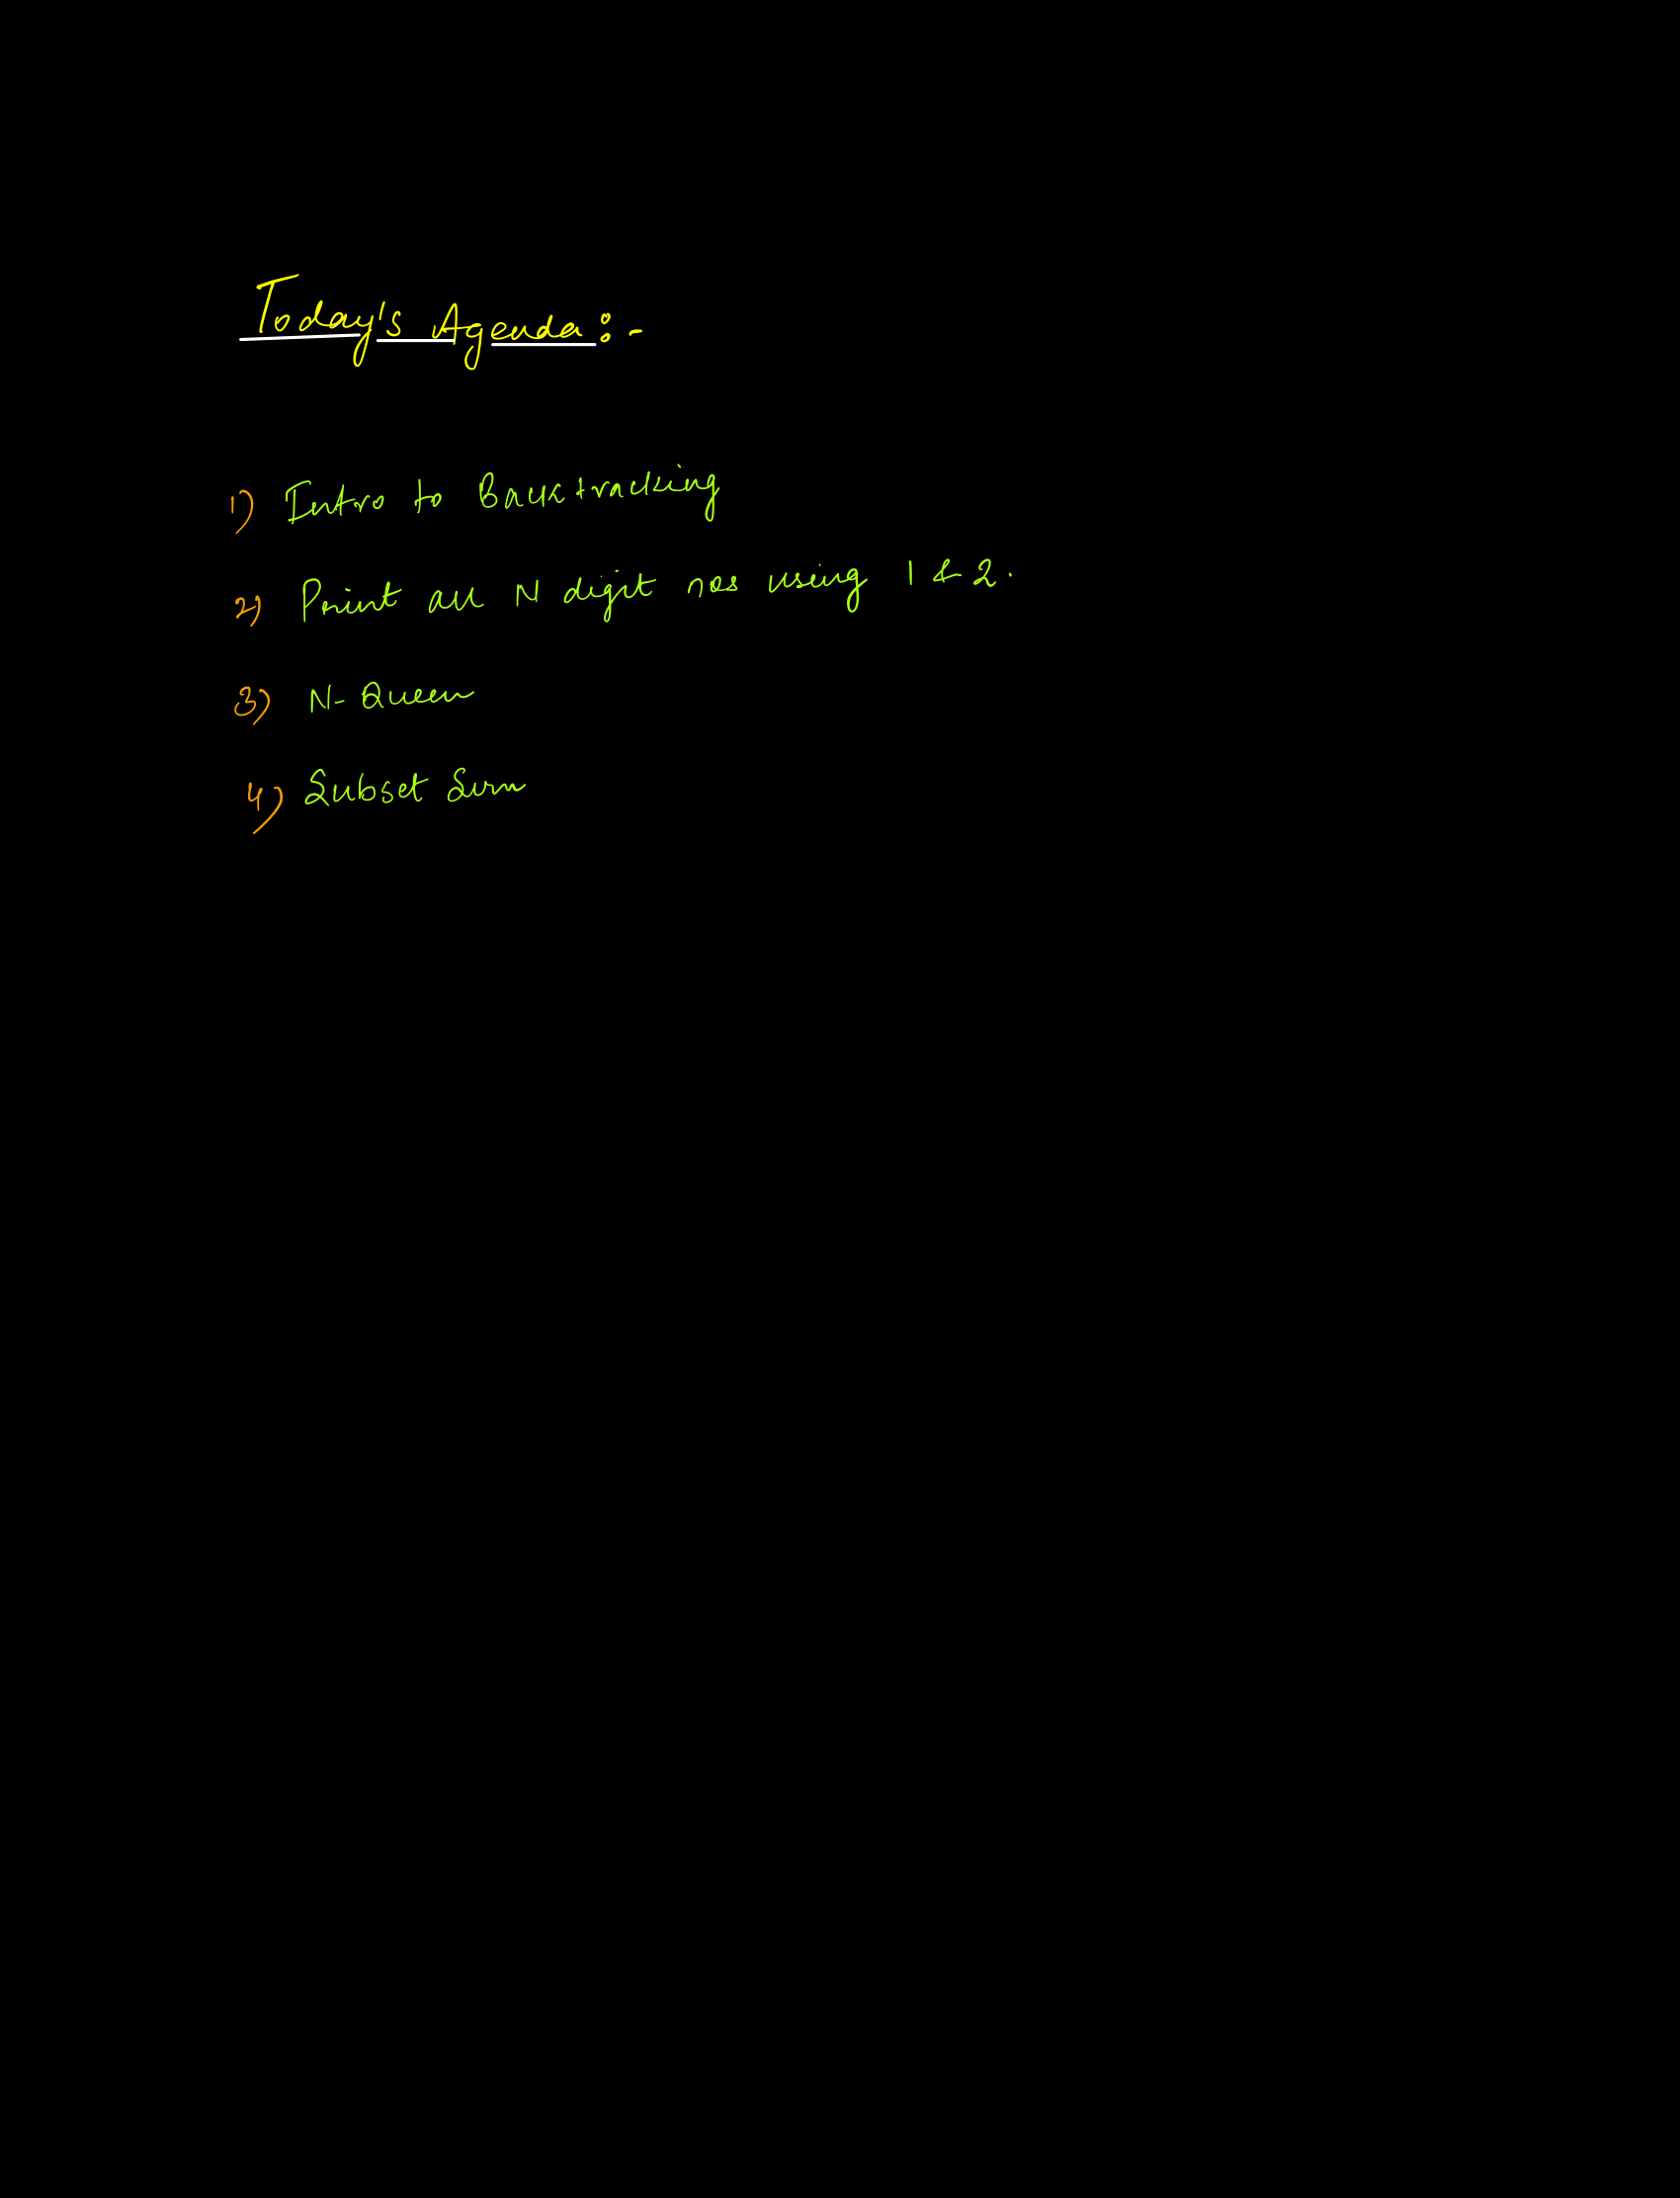 Today's Agenda:-
1) Intro to Backtracking
2) Print all N digit nos using 1 & 2.
3) N-Queen
4) Subset Sum